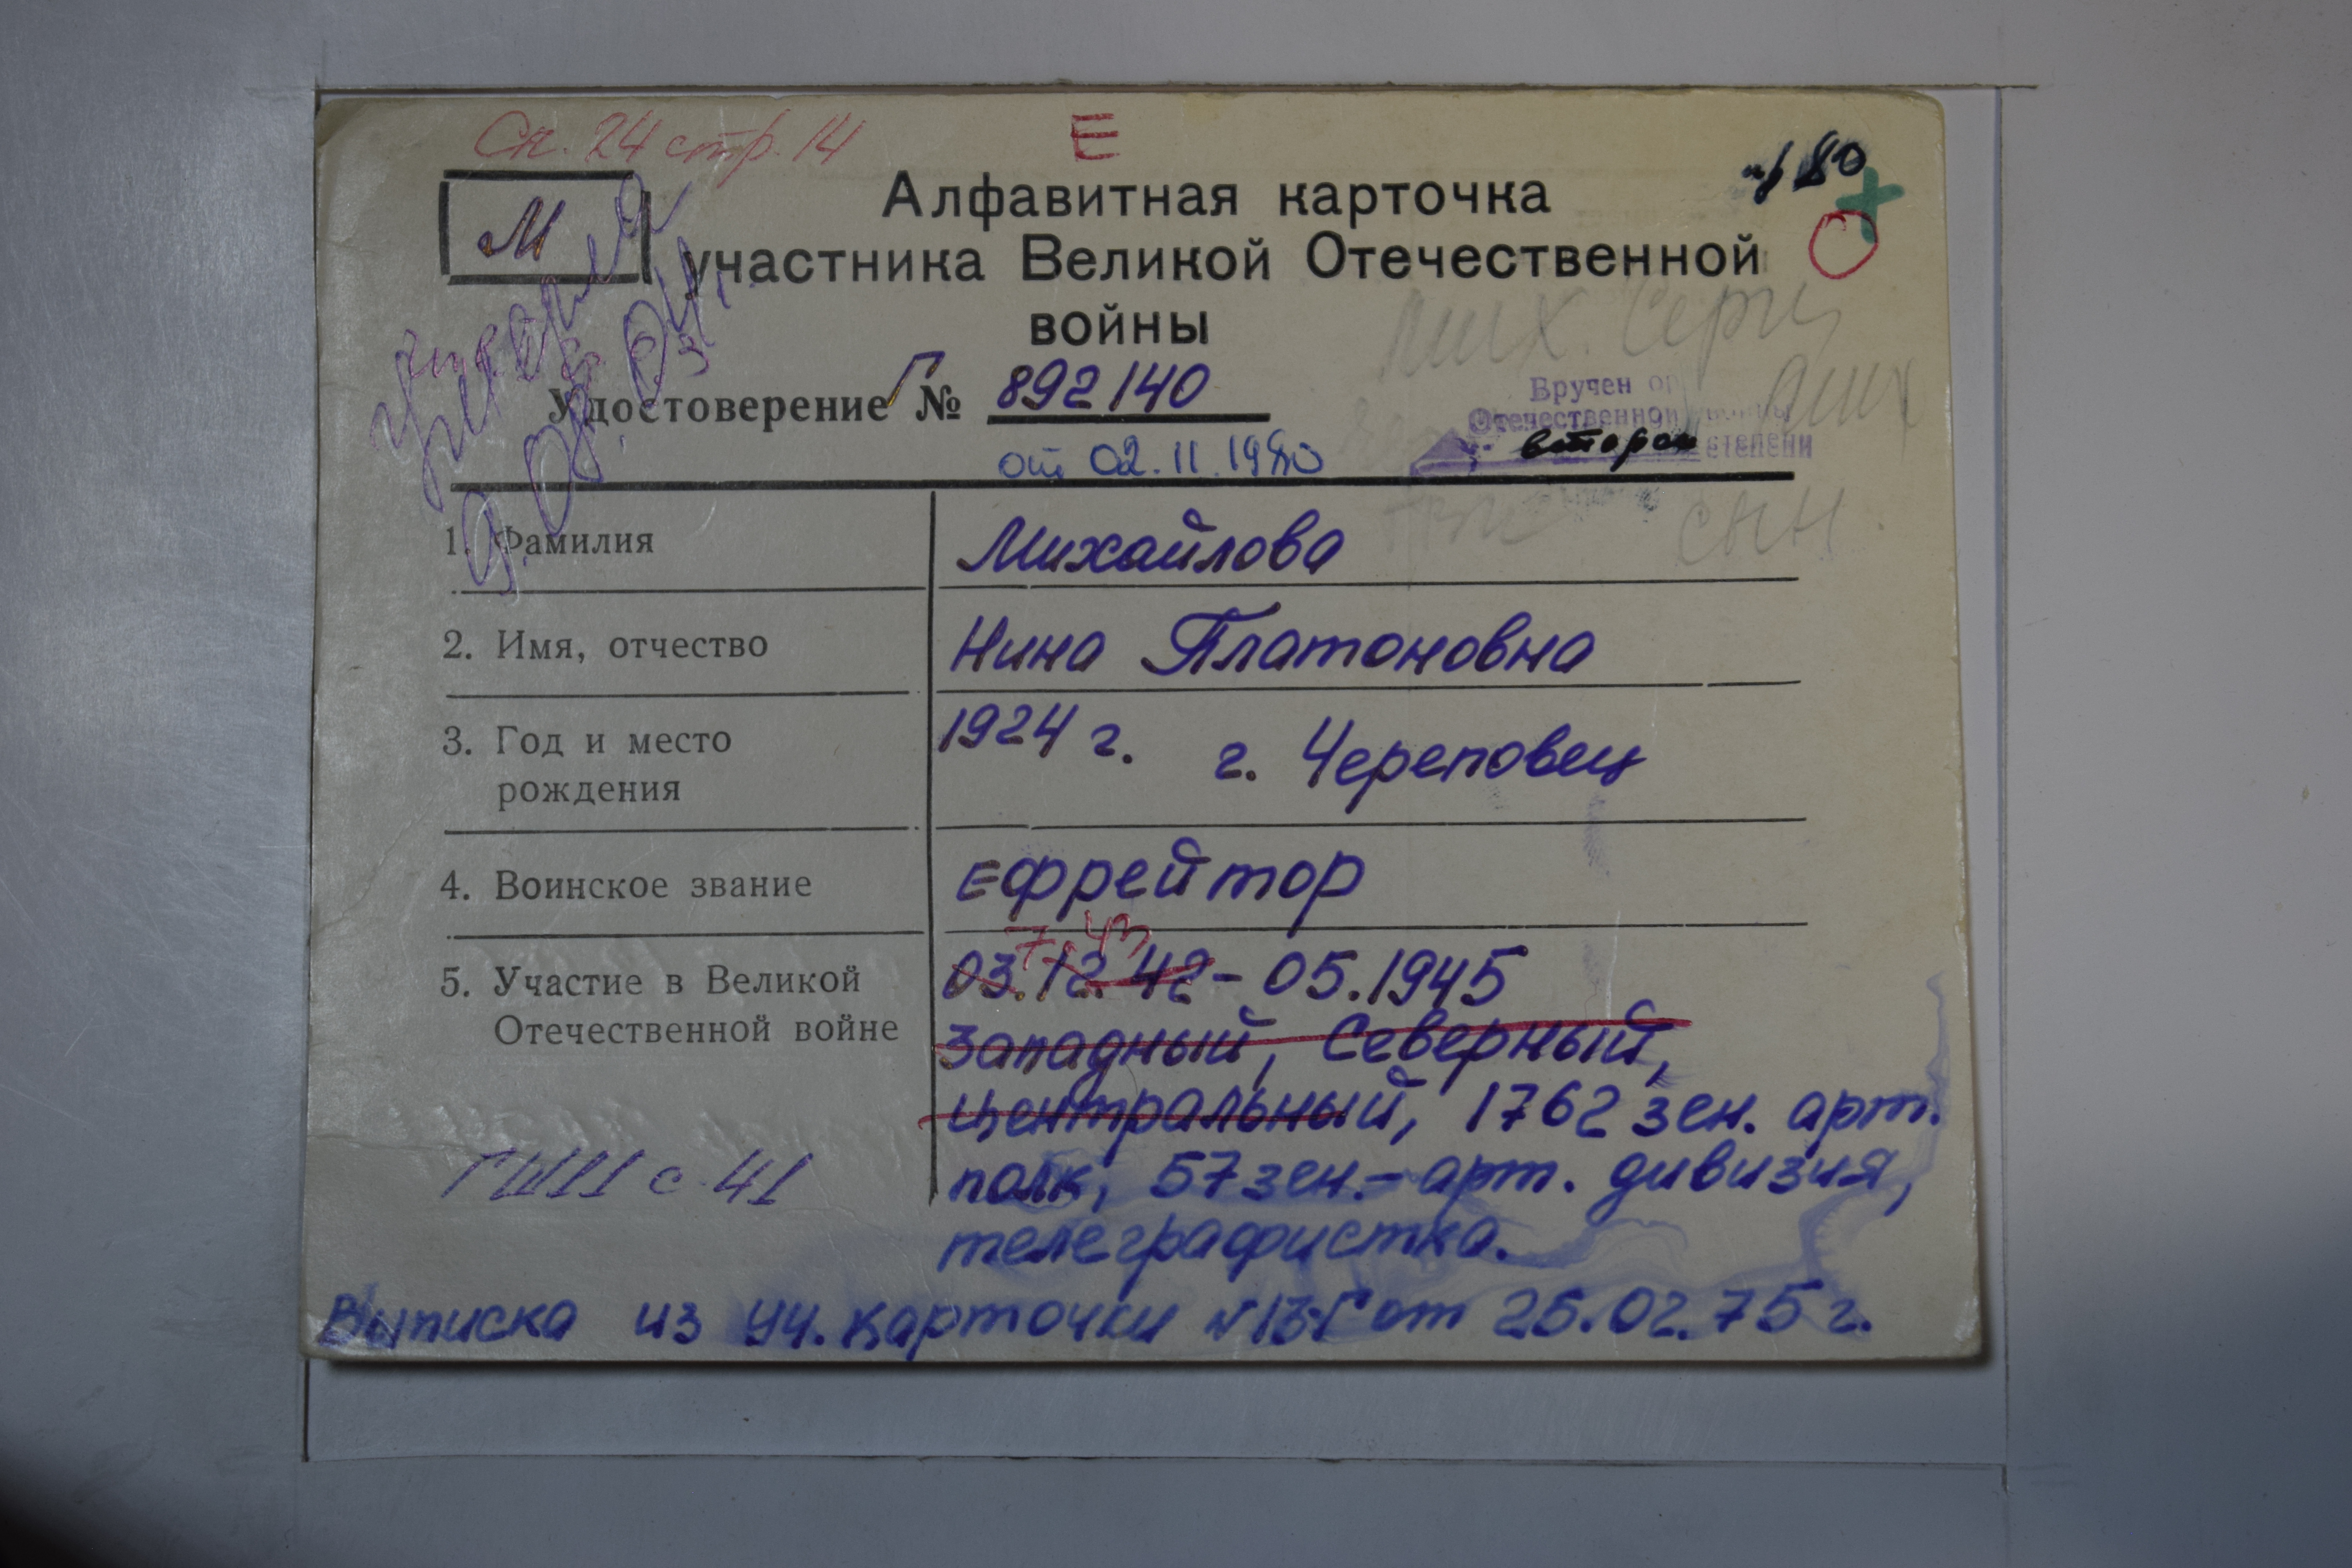 Сп. 24 стр. 14
Е
М
Алфавитная карточка
участника Великой Отечественной
войны
Удостоверение Г № 892140
от 02.11.1980
Вручен ор
Отечественной войны
второй степени
умерла
9.08.04.
1. Фамилия
Михайлова
2. Имя, отчество
Нина Платоновна
3. Год и место
рождения
1924 г. г. Череповец
4. Воинское звание
Ефрейтор
5. Участие в Великой
Отечественной войне
7 43
03.12.42 - 05.1945
Западный, Северный,
Центральный, 1762 зен. арт.
полк, 57 зен.-арт. дивизия,
телеграфистка.
Выписка из уч. карточки от 25.02.75 г.